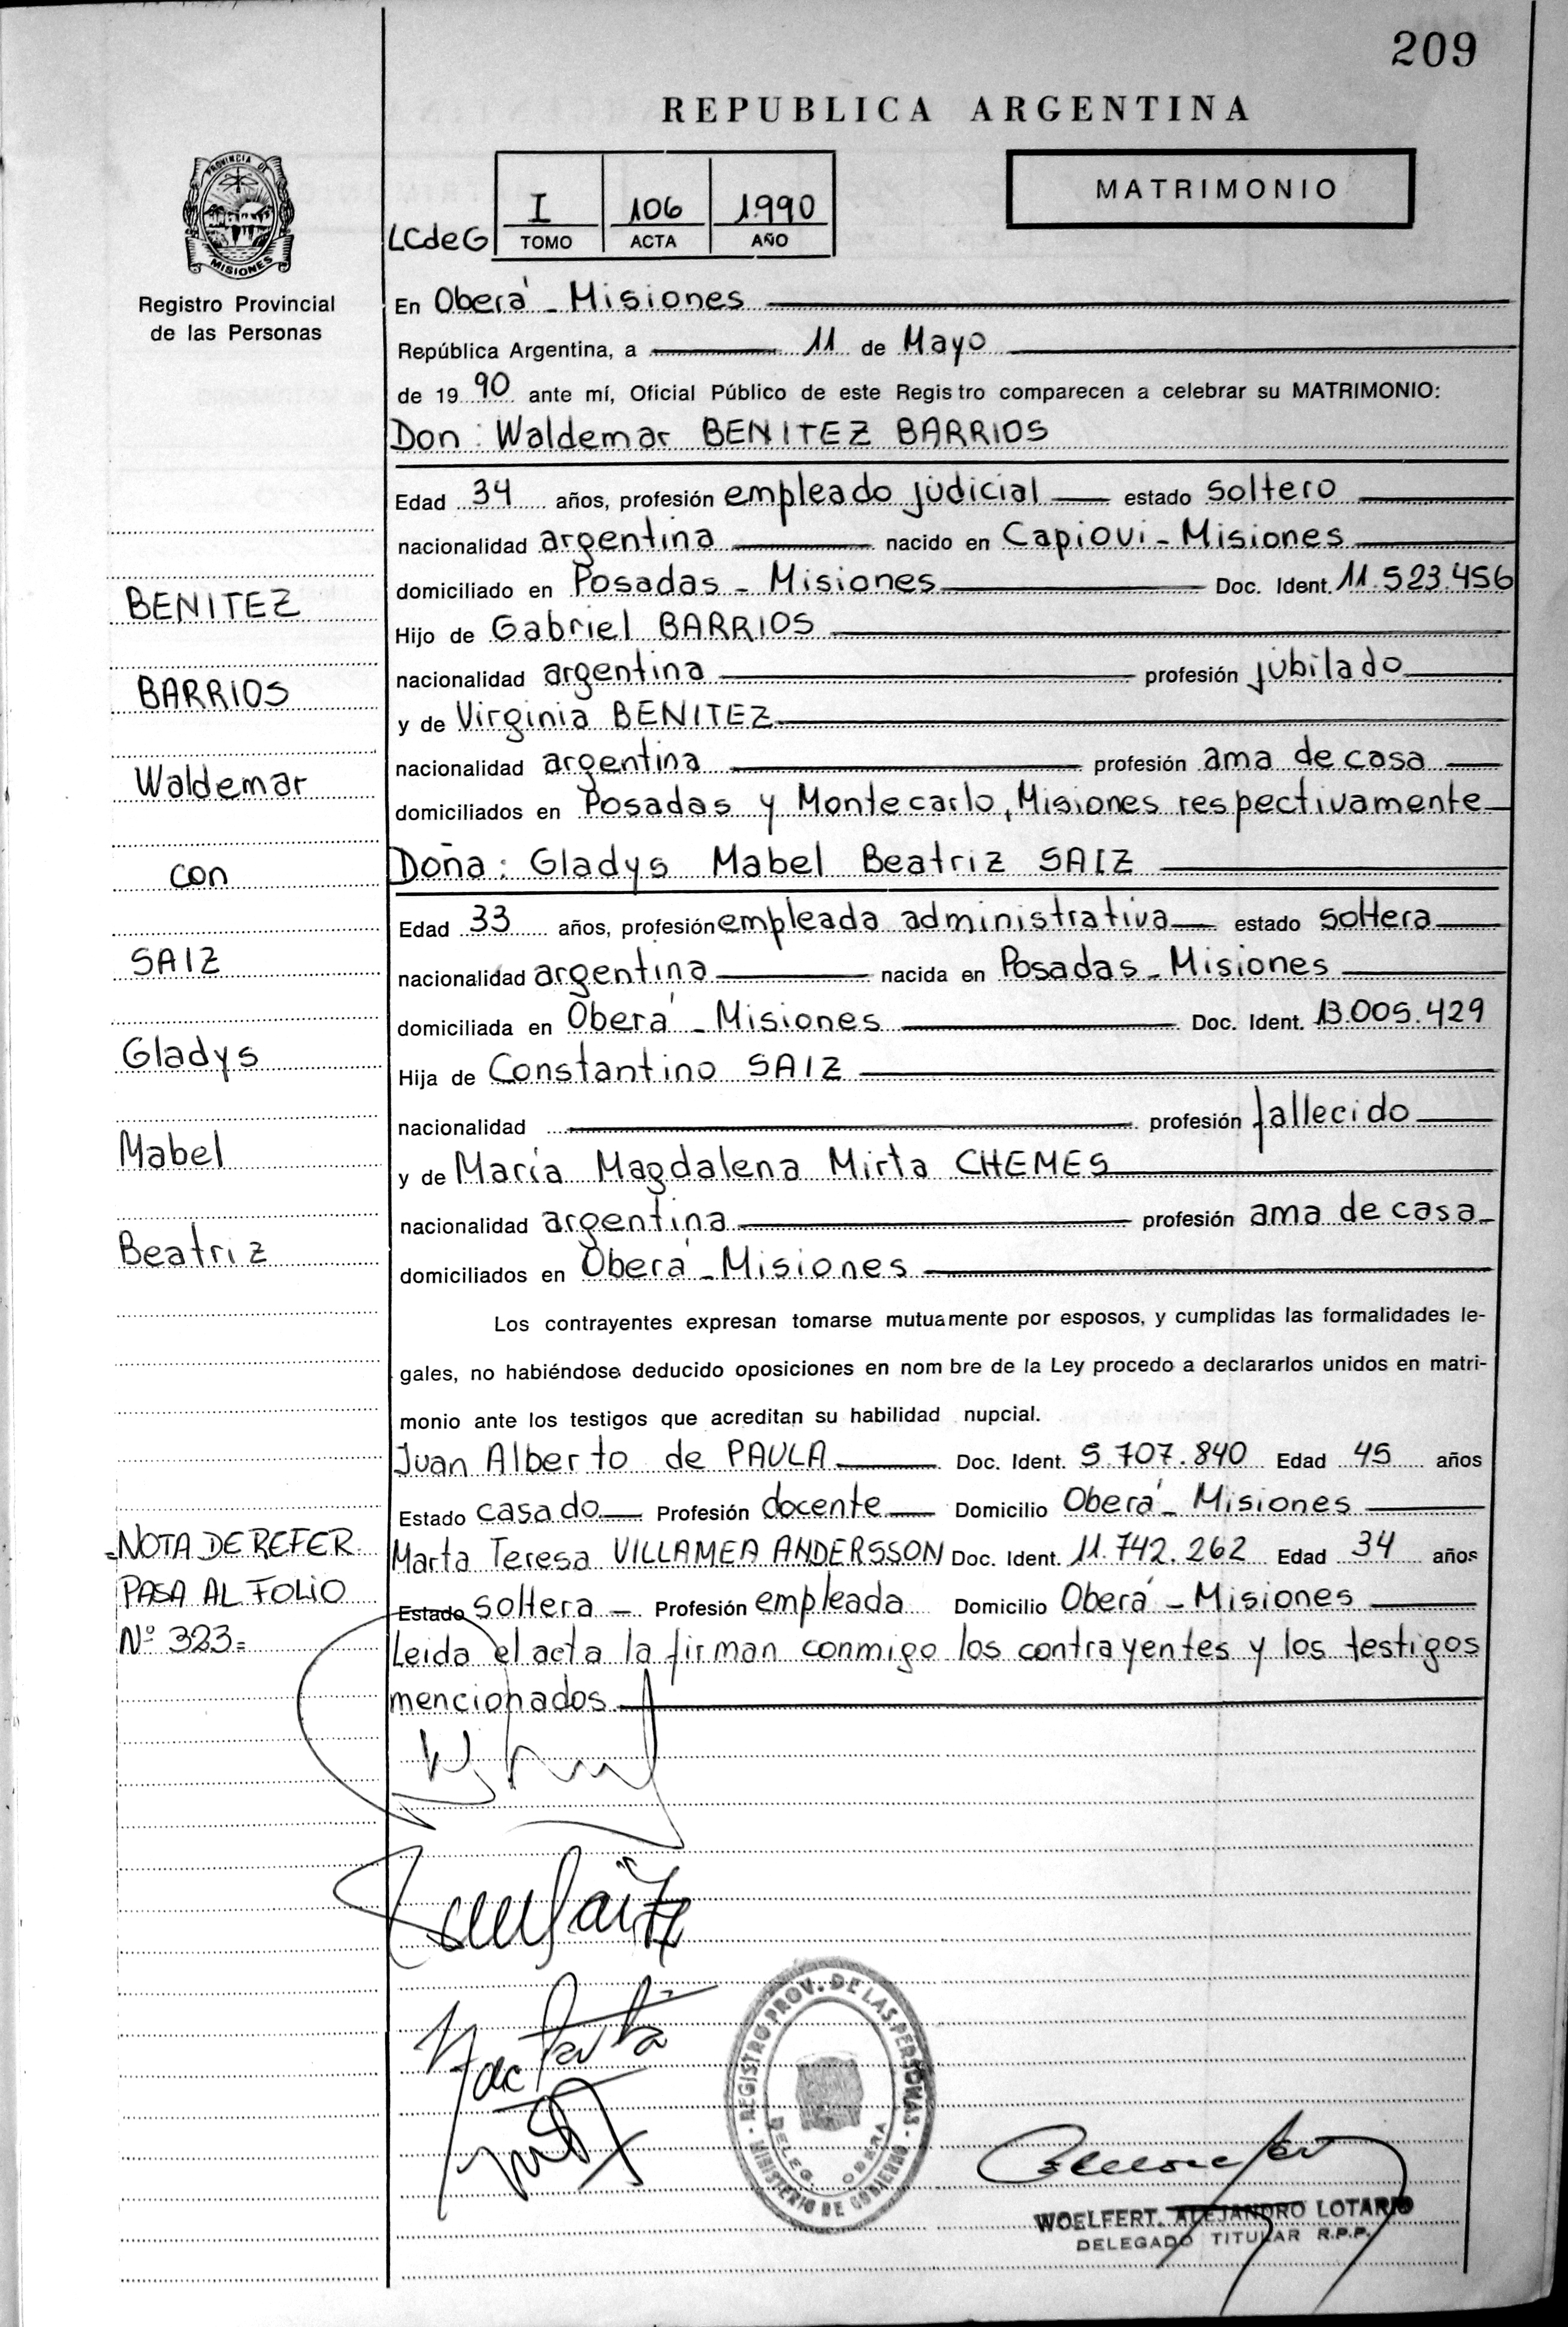 209
REPUBLICA ARGENTINA
PROVINCIA DE
MISIONES
Registro Provincial
de las Personas
LCdeG
I 106 1.990
TOMO ACTA AÑO
MATRIMONIO
En Oberá - Misiones
República Argentina, a 11 de Mayo
de 19 90 ante mí, Oficial Público de este Registro comparecen a celebrar su MATRIMONIO:
Don: Waldemar BENITEZ BARRIOS
Edad 34 años, profesión empleado judicial estado soltero
nacionalidad argentina nacido en Capioví - Misiones
domiciliado en Posadas - Misiones Doc. Ident. 11.523.456
Hijo de Gabriel BARRIOS
nacionalidad argentina profesión jubilado
y de Virginia BENITEZ
nacionalidad argentina profesión ama de casa
domiciliados en Posadas y Montecarlo, Misiones respectivamente
Doña: Gladys Mabel Beatriz SAIZ
Edad 33 años, profesión empleada administrativa estado soltera
nacionalidad argentina nacida en Posadas - Misiones
domiciliada en Oberá - Misiones Doc. Ident. 13.005.429
Hija de Constantino SAIZ
nacionalidad profesión fallecido
y de María Magdalena Mirta CHEMES
nacionalidad argentina profesión ama de casa
domiciliados en Oberá - Misiones
Los contrayentes expresan tomarse mutuamente por esposos, y cumplidas las formalidades le-
gales, no habiéndose deducido oposiciones en nombre de la Ley procedo a declararlos unidos en matri-
monio ante los testigos que acreditan su habilidad nupcial.
Juan Alberto de PAULA Doc. Ident. 5.707.840 Edad 45 años
Estado casado Profesión docente Domicilio Oberá - Misiones
Marta Teresa VILLAMEA ANDERSSON Doc. Ident. 11.742.262 Edad 34 años
Estado soltera - Profesión empleada Domicilio Oberá - Misiones
Leida el acta la firman conmigo los contrayentes y los testigos
mencionados
BENITEZ
BARRIOS
Waldemar
con
SAIZ
Gladys
Mabel
Beatriz
=NOTA DE REFER.
PASA AL FOLIO
Nº 323=
REGISTRO PROV. DE LAS PERSONAS
MINISTERIO DE GOBIERNO
DELEG. OBERA
WOELFERT, ALEJANDRO LOTARIO
DELEGADO TITULAR R.P.P.